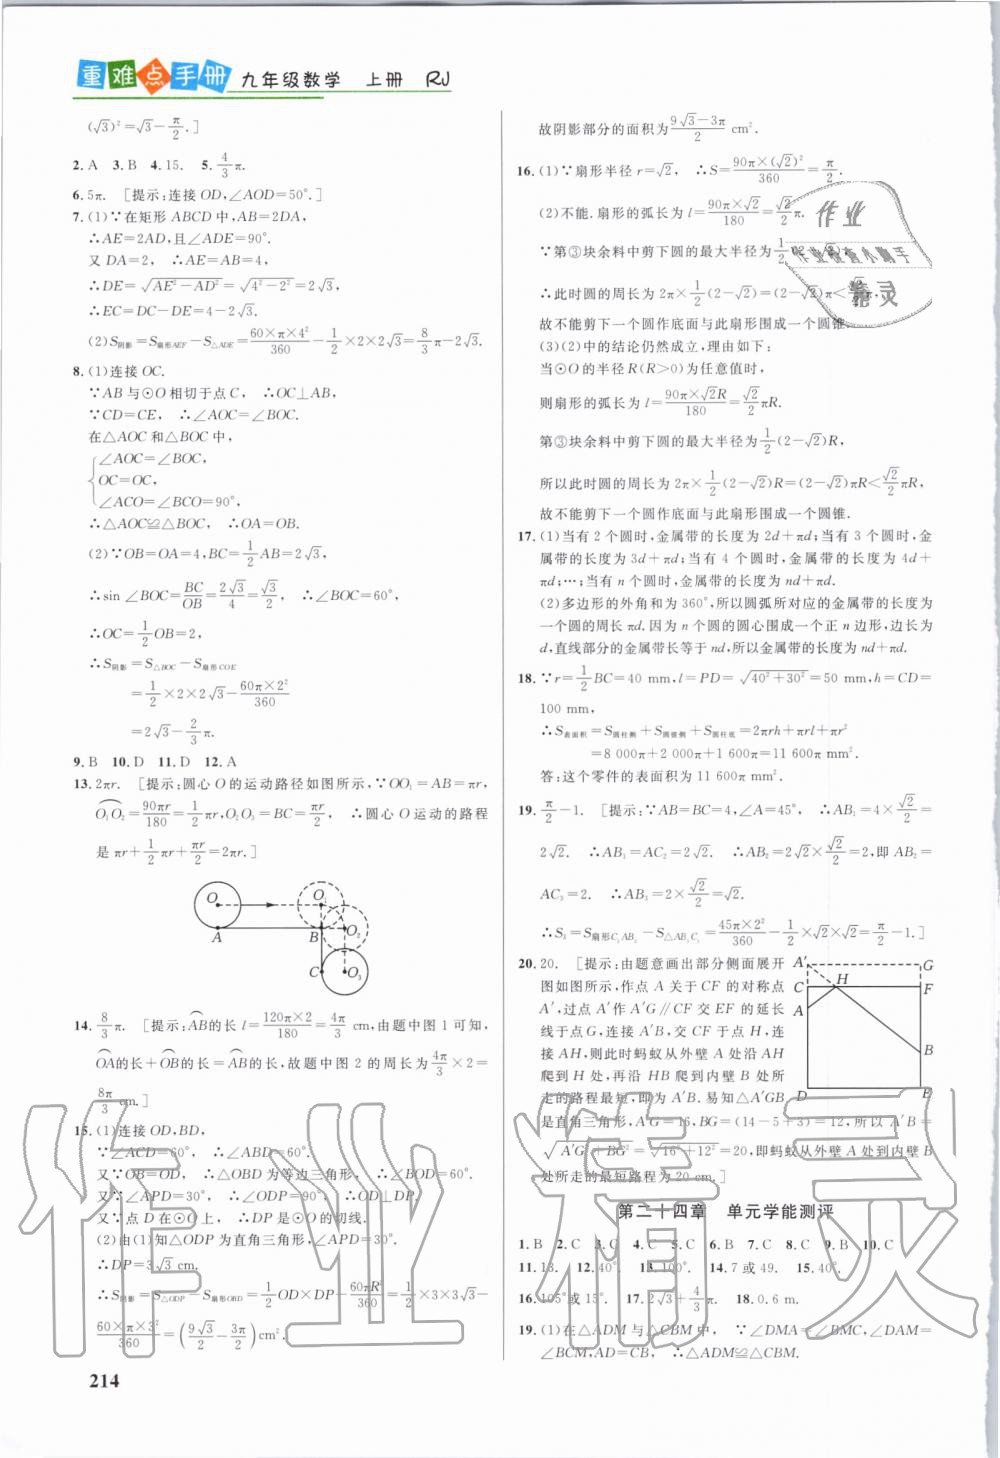 重难点手册 九年级数学 上册 RJ
(√3)²=√3-π/2.]
2. A 3. B 4. 15. 5. 4/3π.
6. 5π. [提示:连接 OD,∠AOD=50°.]
7. (1)∵在矩形 ABCD 中,AB=2DA,
∴AE=2AD,且∠ADE=90°.
又 DA=2, ∴AE=AB=4,
∴DE=√(AE²-AD²)=√(4²-2²)=2√3,
∴EC=DC-DE=4-2√3.
(2)S阴影=S扇形AEF-S△ADE=(60×π×4²)/360-1/2×2×2√3=8/3π-2√3.
8. (1)连接 OC.
∵AB 与⊙O 相切于点 C, ∴OC⊥AB,
∵CD=CE, ∴∠AOC=∠BOC.
在△AOC 和△BOC 中,
∠AOC=∠BOC,
OC=OC,
∠ACO=∠BCO=90°,
∴△AOC≌△BOC, ∴OA=OB.
(2)∵OB=OA=4,BC=1/2AB=2√3,
∴sin ∠BOC=BC/OB=2√3/4=√3/2, ∴∠BOC=60°,
∴OC=1/2OB=2,
∴S阴影=S△BOC-S扇形COE
=1/2×2×2√3-(60π×2²)/360
=2√3-2/3π.
9. B 10. D 11. D 12. A
13. 2πr. [提示:圆心 O 的运动路径如图所示,∵OO₁=AB=πr,
O₁O₂=90πr/180=1/2πr,O₂O₃=BC=πr/2, ∴圆心 O 运动的路程
是 πr+1/2πr+πr/2=2πr.]
O O₁
A B O₂
C O₃
14. 8/3π. [提示:AB的长 l=(120π×2)/180=4π/3 cm,由题中图 1 可知,
OA的长+OB的长=AB的长,故题中图 2 的周长为4π/3×2=
8π/3 cm.]
15. (1)连接 OD,BD,
∵∠ACD=60°, ∴∠ABD=60°.
又∵OB=OD, ∴△OBD 为等边三角形, ∴∠BOD=60°.
又∵∠APD=30°, ∴∠ODP=90°, ∴OD⊥DP.
又∵点 D 在⊙O 上, ∴DP 是⊙O 的切线.
(2)由(1)知△ODP 为直角三角形,
∴DP=3√3 cm,
∴S阴影=S△ODP-S扇形OBD=1/2OD×DP-60πR²/360=1/2×3×3√3-
(60×π×3²)/360=(9√3/2-3π/2)cm².
214
故阴影部分的面积为(9√3-3π)/2 cm².
16. (1)∵扇形半径 r=√2, ∴S=(90π×(√2)²)/360=π/2.
(2)不能.扇形的弧长为 l=(90π×√2)/180=√2/2π.
∵第③块余料中剪下圆的最大半径为1/2(2-√2),
∴此时圆的周长为 2π×1/2(2-√2)=(2-√2)π<√2/2π,
故不能剪下一个圆作底面与此扇形围成一个圆锥.
(3)(2)中的结论仍然成立,理由如下:
当⊙O 的半径 R(R>0)为任意值时,
则扇形的弧长为 l=(90π×√2R)/180=√2/2πR.
第③块余料中剪下圆的最大半径为1/2(2-√2)R,
所以此时圆的周长为 2π×1/2(2-√2)R=(2-√2)πR<√2/2πR,
故不能剪下一个圆作底面与此扇形围成一个圆锥.
17. (1)当有 2 个圆时,金属带的长度为 2d+πd;当有 3 个圆时,金
属带的长度为 3d+πd;当有 4 个圆时,金属带的长度为 4d+
πd;…;当有 n 个圆时,金属带的长度为 nd+πd.
(2)多边形的外角和为 360°,所以圆弧所对应的金属带的长度为
一个圆的周长 πd.因为 n 个圆的圆心围成一个正 n 边形,边长为
d,直线部分的金属带长等于 nd,所以金属带的长度为 nd+πd.
18. ∵r=1/2BC=40 mm,l=PD=√(40²+30²)=50 mm,h=CD=
100 mm,
∴S表面积=S圆柱侧+S圆锥侧+S圆柱底=2πrh+πrl+πr²
=8 000π+2 000π+1 600π=11 600π mm².
答:这个零件的表面积为 11 600π mm².
19. π/2-1. [提示:∵AB=BC=4,∠A=45°, ∴AB₁=4×√2/2=
2√2. ∴AB₁=AC₂=2√2. ∴AB₂=2√2×√2/2=2,即 AB₂=
AC₃=2. ∴AB₃=2×√2/2=√2.
∴S₃=S扇形C₃AB₂-S△AB₃C₃=(45π×2²)/360-1/2×√2×√2=π/2-1.]
20. 20. [提示:由题意画出部分侧面展开
图如图所示,作点 A 关于 CF 的对称点
A′,过点 A′作 A′G∥CF 交 EF 的延长
线于点 G,连接 A′B,交 CF 于点 H,连
接 AH,则此时蚂蚁从外壁 A 处沿 AH
爬到 H 处,再沿 HB 爬到内壁 B 处所
走的路程最短,即为 A′B.易知△A′GB
是直角三角形,A′G=16,BG=(14-5+3)=12,所以 A′B=
√(A′G²+BG²)=√(16²+12²)=20,即蚂蚁从外壁 A 处到内壁 B
处所走的最短路程为 20 cm.]
A′ G
C H F
A
B
D E
第二十四章 单元学能测评
1. B 2. C 3. C 4. C 5. C 6. B 7. C 8. C 9. B 10. C
11. 13. 12. 40°. 13. 100°. 14. 7 或 49. 15. 40°.
16. 105°或 15°. 17. 2√3+4/3π. 18. 0.6 m.
19. (1)在△ADM 与△CBM 中, ∵∠DMA=∠BMC,∠DAM=
∠BCM,AD=CB, ∴△ADM≌△CBM.
作业
作业检查小助手
精灵
作业精灵